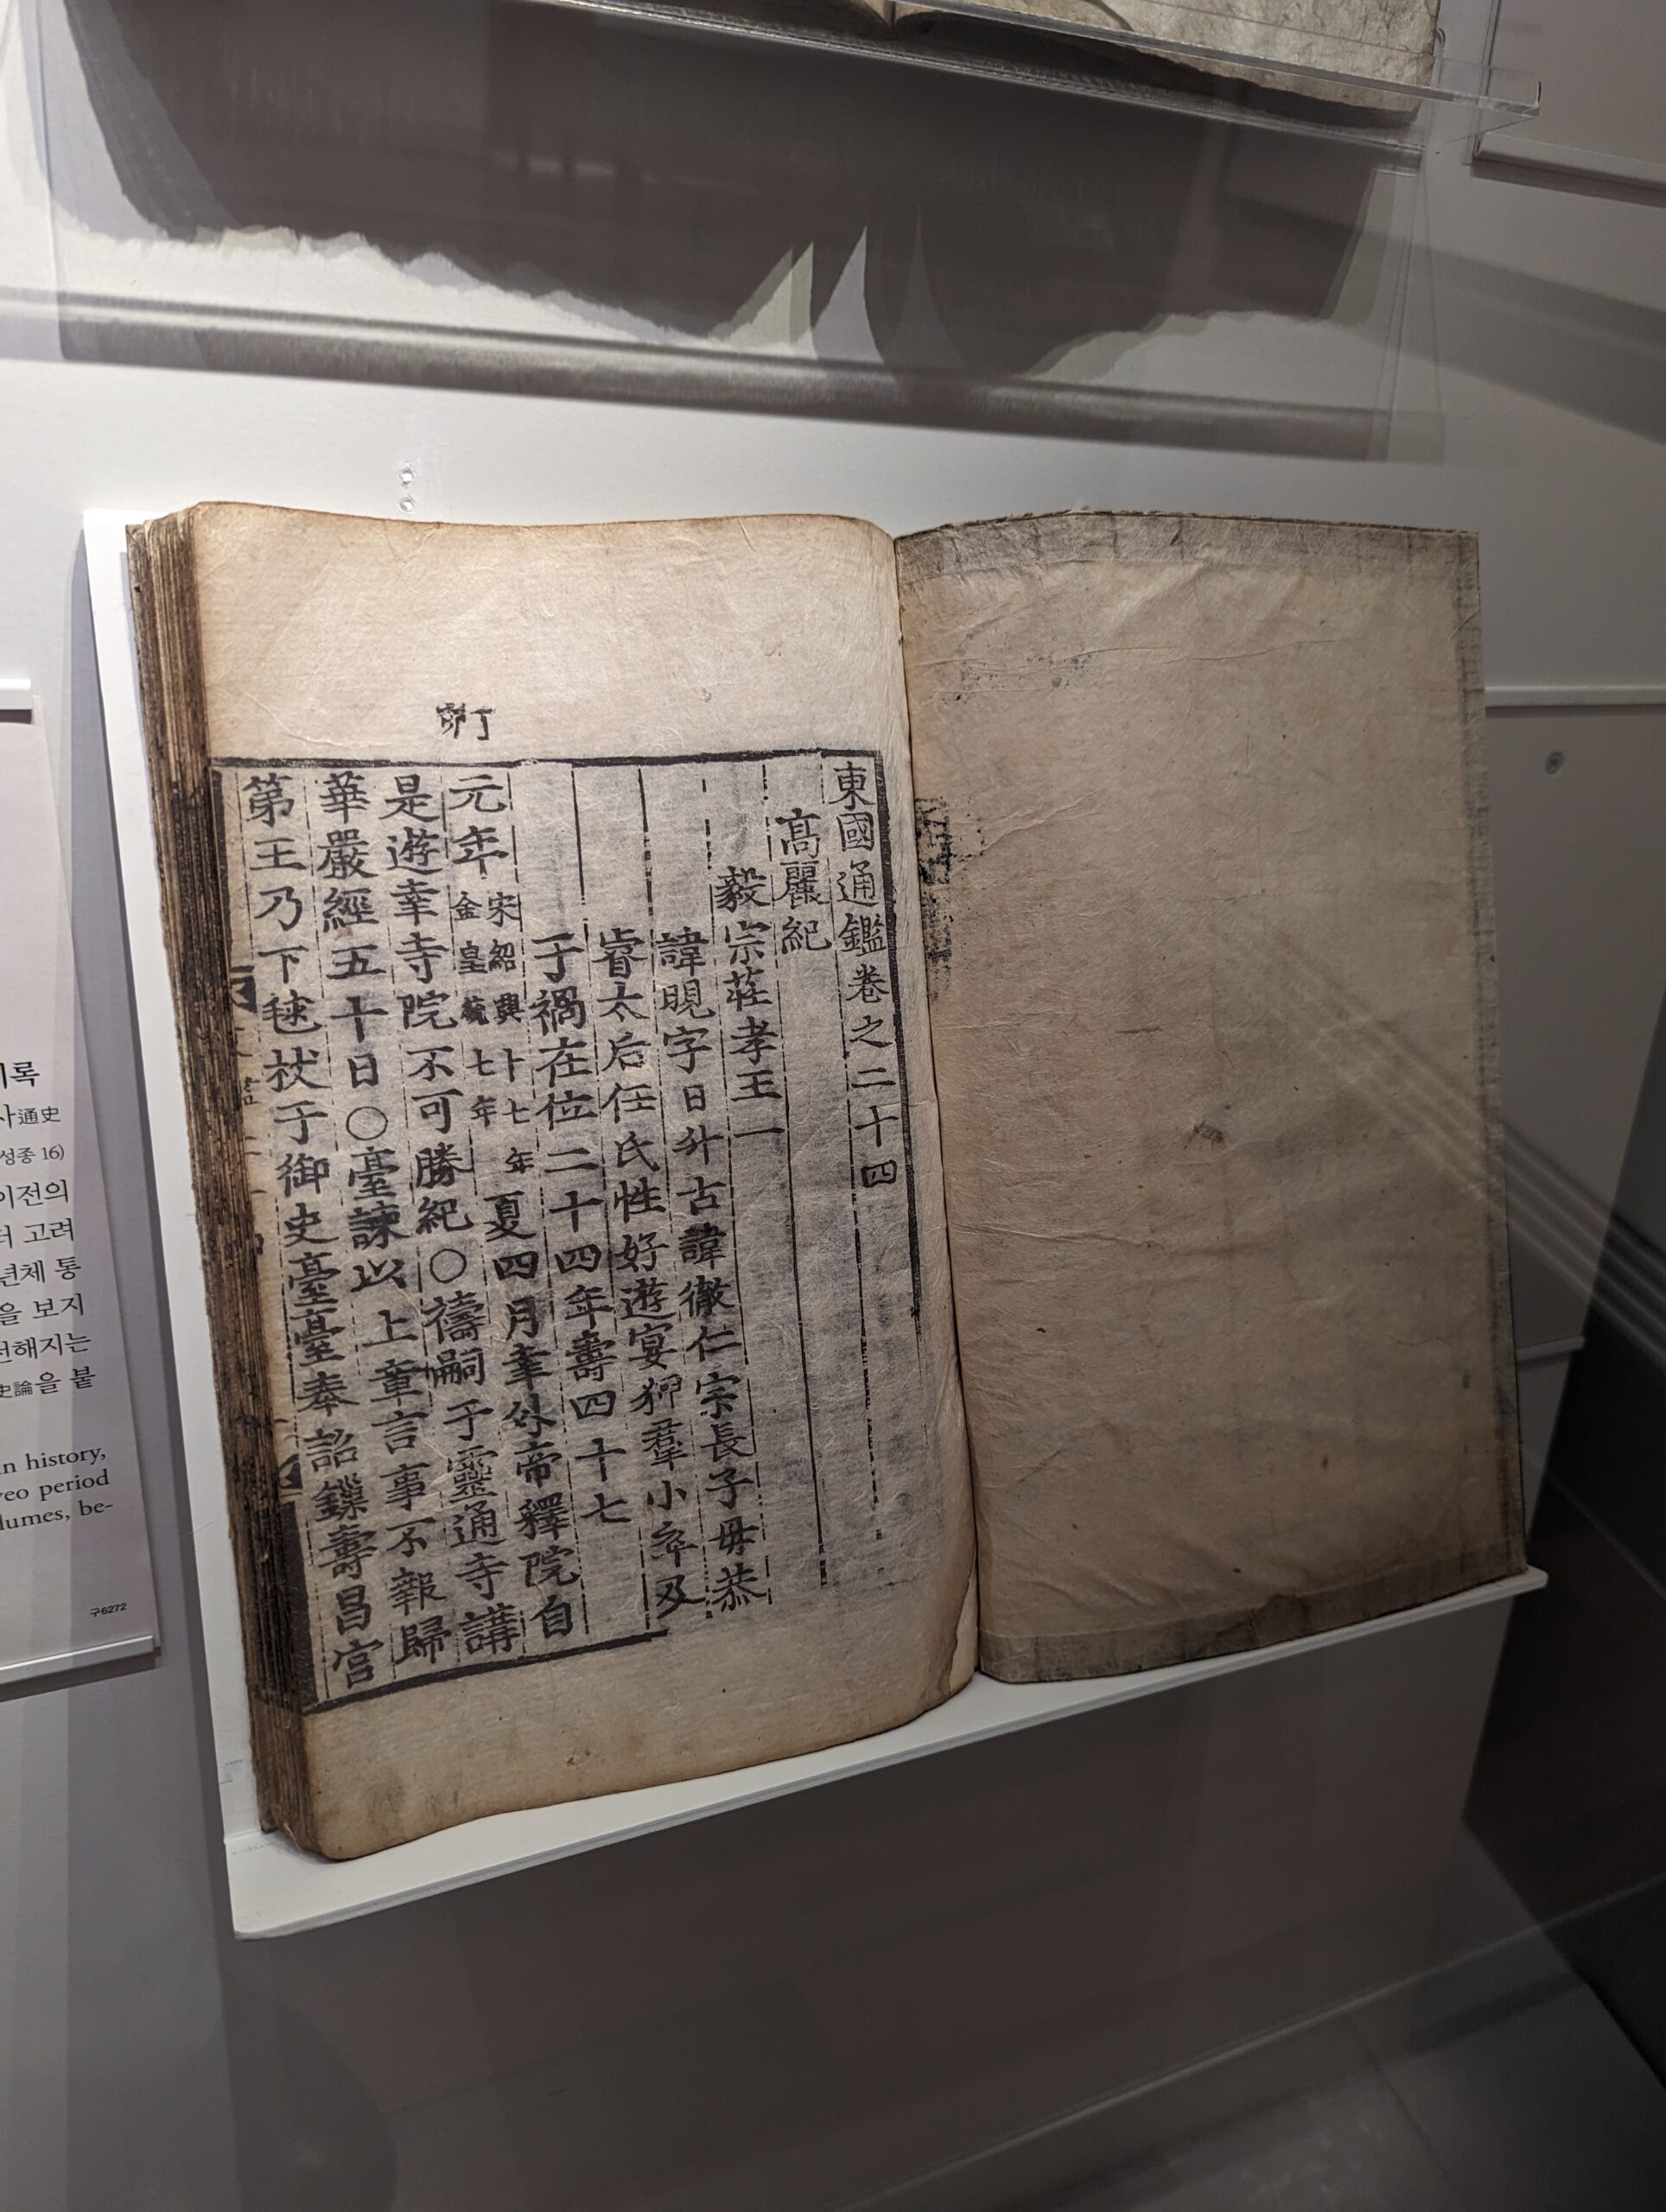 東國通鑑卷之二十四
高麗紀
毅宗莊孝王一
諱晛字日升古諱徹仁宗長子母恭
睿太后任氏性好遊宴狎羣小卒及
于禍在位二十四年壽四十七
丁卯
元年宋紹興十七年金皇統七年夏四月幸外帝釋院自
是遊幸寺院不可勝紀○禱嗣于靈通寺講
華嚴經五十日○臺諫以上章言事不報歸
第王乃下毬杖于御史臺臺奉詔鏁壽昌宮
록
사通史
성종 16)
이전의
터 고려
년체 통
을 보지
전해지는
史論을 붙
n history,
eo period
lumes, be-
구6272